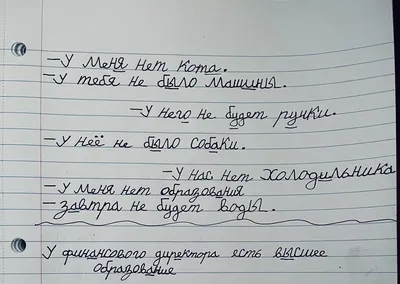 -У меня нет кота.
-У тебя не было машины.
-У него не будет ручки.
-У неё не было собаки.
-У нас нет холодильника
-У меня нет образования
-завтра не будет воды.
У финансового директора есть высшее
образование